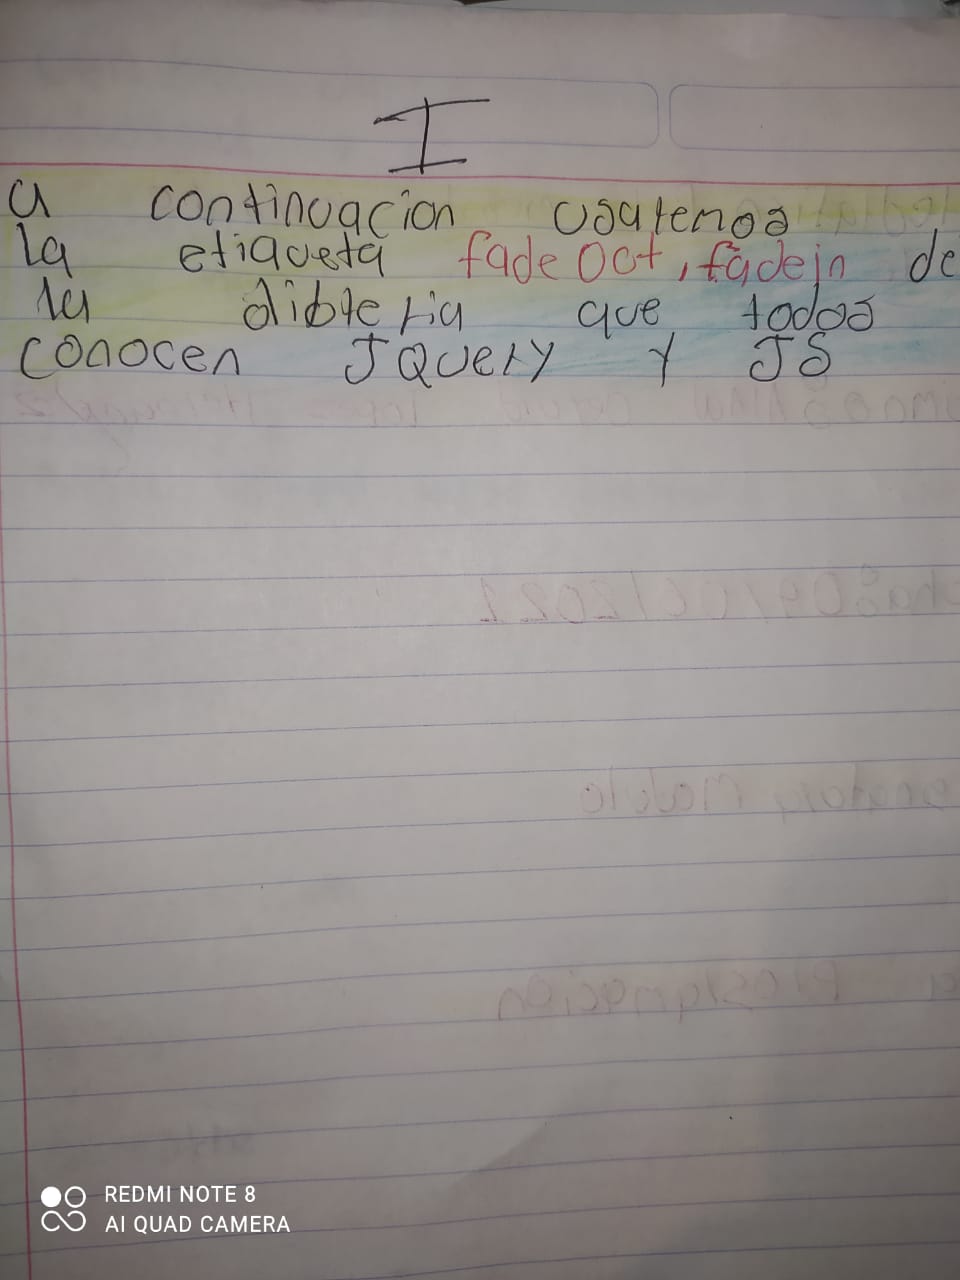 I
a continuacion usaremos
la etiqueta fadeOut, fadein de
la dibreria que todos
conocen JQuery y JS
REDMI NOTE 8
AI QUAD CAMERA